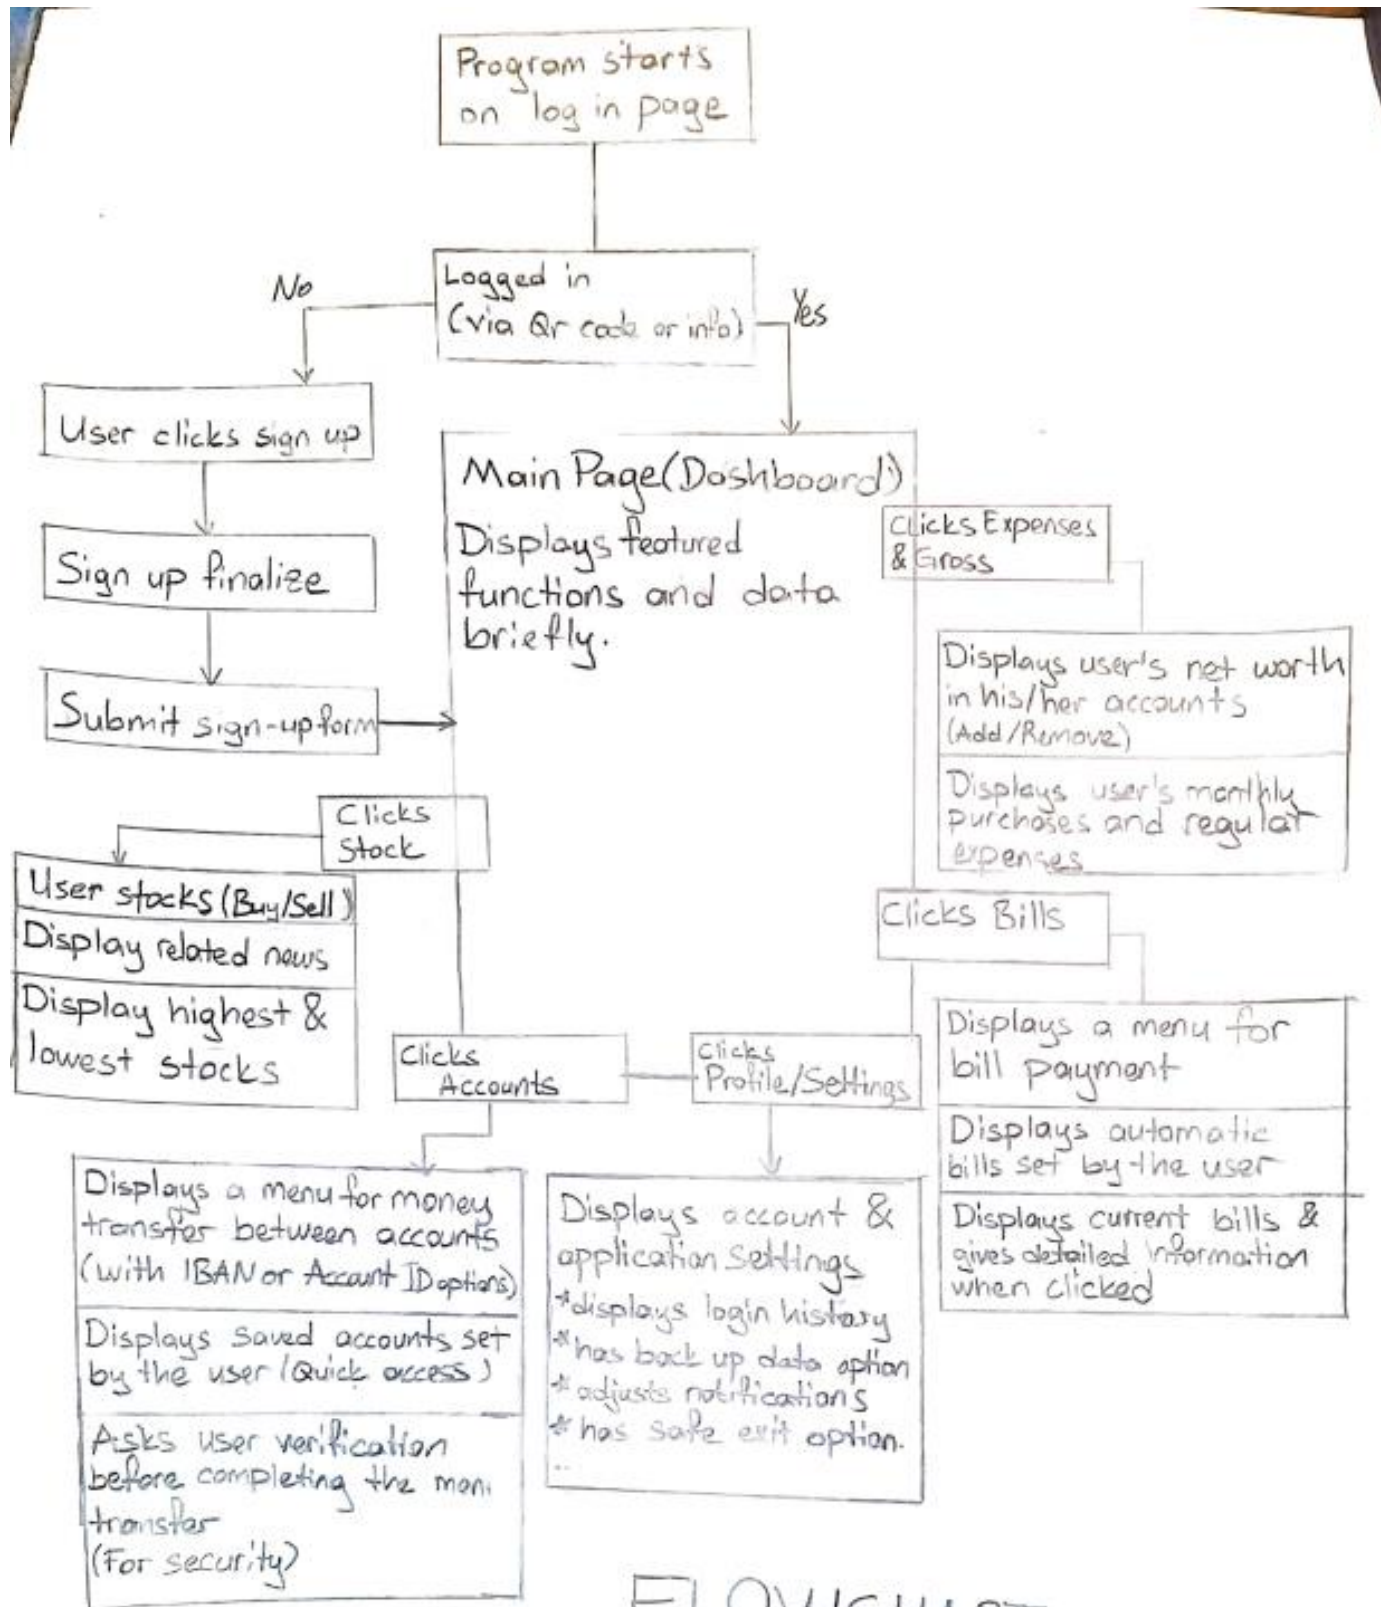 Program starts
on log in page
Logged in
(via Qr code or info)
No
Yes
User clicks sign up
Sign up finalize
Submit sign-up form
Main Page(Dashboard)
Displays featured
functions and data
briefly.
Clicks Expenses
& Gross
Displays user's net worth
in his/her accounts
(Add/Remove)
Displays user's monthly
purchases and regular
expenses
Clicks
Stock
User stocks (Buy/Sell)
Display related news
Display highest &
lowest stocks
Clicks Bills
Displays a menu for
bill payment
Displays automatic
bills set by the user
Displays current bills &
gives detailed information
when clicked
Clicks
Accounts
Displays a menu for money
transfer between accounts
(with IBAN or Account ID options)
Displays saved accounts set
by the user (Quick access)
Asks user verification
before completing the
transfer
(For security)
Clicks
Profile/Settings
Displays account &
application Settings
*displays login history
*has back up data option
*adjusts notifications
*has safe exit option.
..